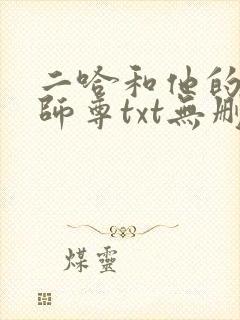 二哈和他的
師尊txt無刪
煤靈